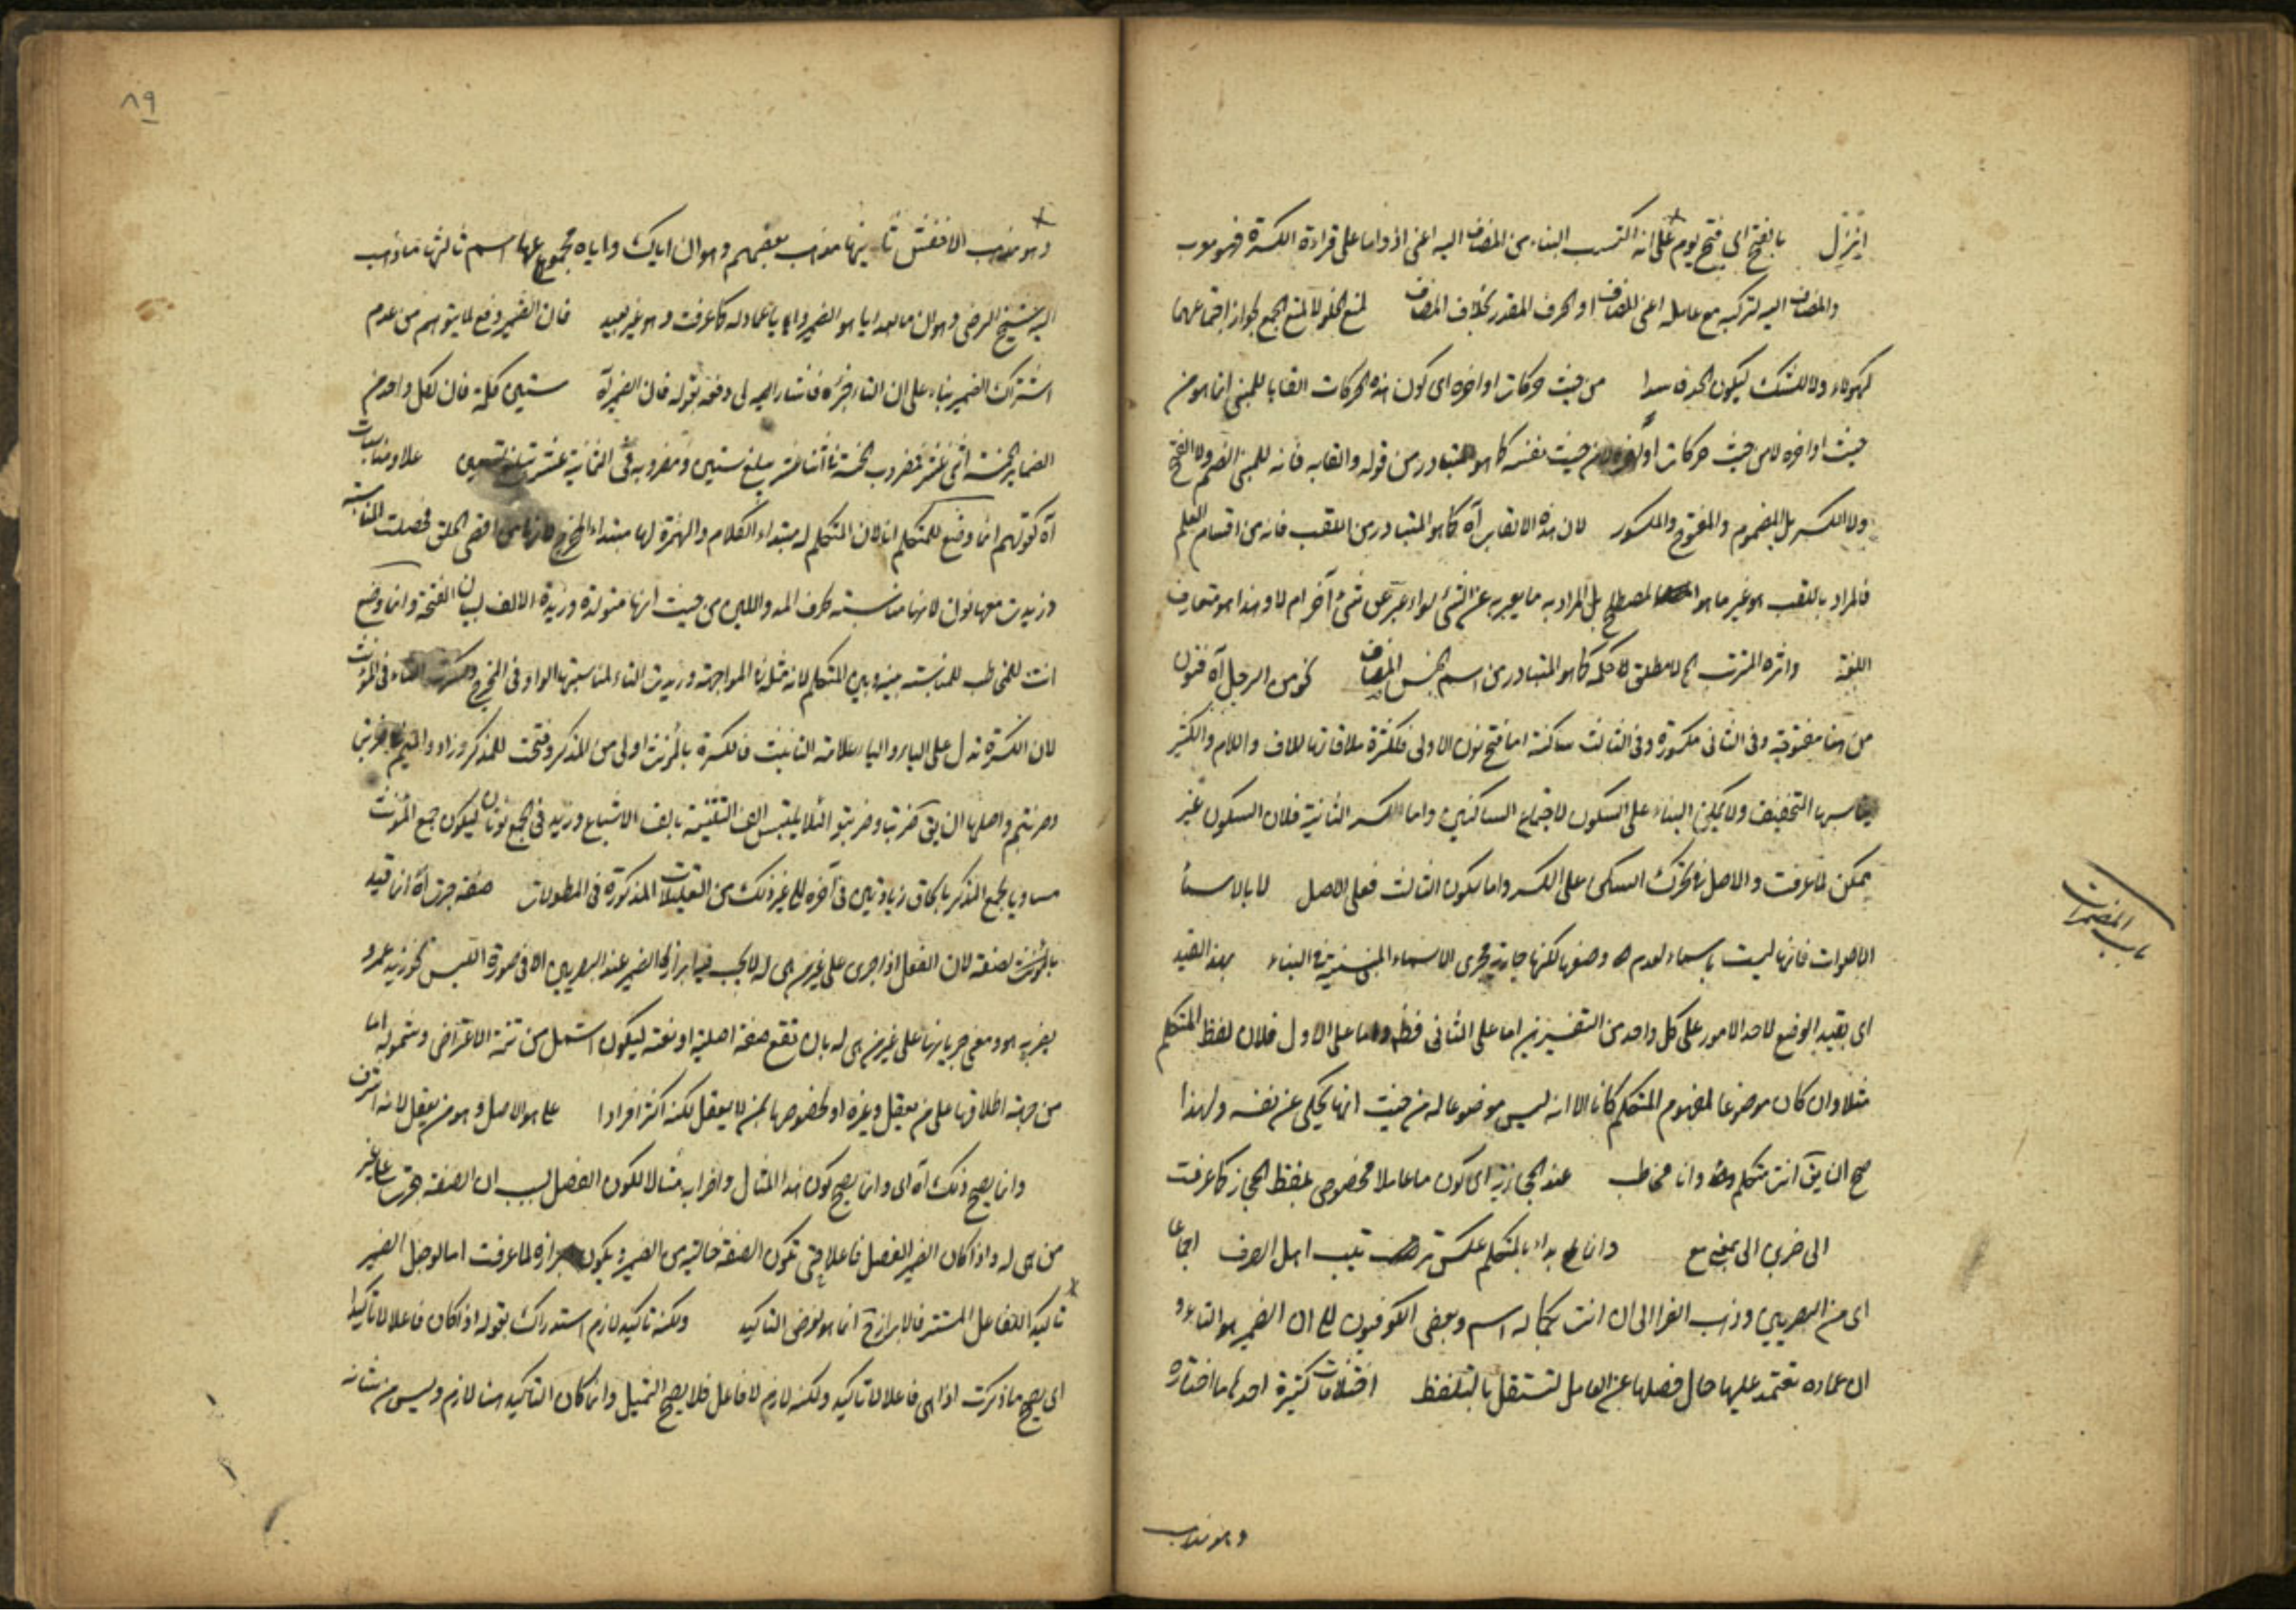 بالفتح اى فتح يوم على انه اكتسب البناء من المضاف اليه اعنى اذ واما على قراءة الكسرة فهو معرب
والمضاف اليه لتركبه مع عامله اعنى المضاف او الحرف المقدر بخلاف المضاف لمنع الخلو لا لمنع الجمع لجواز اجتماعهما
كهؤلاء ولا للشك ليكون الحد فاسدا من حيث حركات اواخره اى كون هذه الحركات القابا للمبنى انما هو من
حيث اواخره لا من حيث حركات من حيث نفسه كما هو المتبادر من قوله والقابه فانه للمبنى الضم ولا الفتح
ولا الكسر بل المضموم والمفتوح والمكسور لان هذه الالقاب آه كما هو المتبادر من اللقب فانه من اقسام العلم
فالمراد باللقب هو غير ما هو المصطلح بل المراد به ما يعبر به عن الشئ سواء عبر عن شئ آخر ام لا وهذا هو متعارف
اللغة واثره المترتب لا مطلق لا حكمه كما هو المتبادر من اسم الجنس المضاف نحو من الرجل آه فنون
من هنا مفتوحة وفى الثانى مكسورة وفى الثالث ساكنة اما فتح نون الاولى فلكثرة ملاقاتها للالف واللام والكثير
يناسبها التخفيف ولا يمكن البناء على السكون لاجتماع الساكنين واما الكسر الثانية فلان السكون غير
ممكن لما عرفت والاصل فى تحرك الساكن على الكسر واما سكون الثالث فعلى الاصل لا بالاسماء
الاصوات فانها ليست باسماء لعدم وضعها لكنها جارية مجرى الاسماء المبنية فى البناء بهذا القيد
اى بقيد الوضع لاحد الامور على كل واحد من التفسيرين اما على الثانى فظ واما على الاول فلان لفظ المتكلم
مثلا وان كان موضوعا لمفهوم المتكلم كانا الا انه ليس موضوعا له من حيث انها يحكى عن نفسه ولهذا
صح ان يق انت متكلم وانا مخاطب عند الحجازية اى كون ما عاملا مخصوص بلفظ الحجاز كما عرفت
الى ضربى الى بمعنى مع وانما بدا بالمتكلم عكس ترتيب اهل الصرف اجماعا
اى من البصريين وذهب الفرا الى ان انت بكماله اسم وبعض الكوفيون الى ان الضمير هو التاء و
ان عماده تعتمد عليها حال فصلها عن العامل لتستقل بالتلفظ اختلافات كثيرة احدها ما اختاره
وهو مذهب
باب المضمرات
٨٩
وهو مذهب الاخفش ثانيها مذهب بعضهم وهو ان اياك واياه مجموعها اسم ثالثها ما ذهب
اليه الشيخ الرضى وهو ان ما بعد ايا هو الضمير وايا عماد له كما عرفت وهو غير بعيد فان الضمير دفع لما يتوهم من عدم
اشتراك الضمير بناء على ان التاء جزؤه فاشار الى دفعه بقوله فان الضمير آه ستين كلمة فان لكل واحد من
الضماير الخمسة اثنى عشر فمضروب الخمسة فى اثنا عشر يبلغ ستين ومضروبه فى الثمانية عشر تبلغ تسعين علاو مناسبات
آه كقولهم انما وضع للمتكلم انا لان المتكلم له مبتداء الكلام والهمزة لها مبتداء المخرج اقصى الحلق فحصلت المناسبة
وزيدت معها نون لانها مناسبة لحرف المد واللين من حيث انها متولدة وزيدة الالف لبيان الفتحة وانما وضع
انت للمخاطب للمناسبة بينه وبين المتكلم لانه مثله فى المواجهة وزيدت التاء لمناسبتها الواو فى المخرج وكسرت التاء فى المؤنث
لان الكسرة تدل على الياء والياء علامة التانيث فالكسرة بالمؤنث اولى من المذكر وفتحت للمذكر وزاد والميم فى ضربتما
وضربتم واصلها ان يق ضربتا وضربتو لئلا يلتبس الف التثنية بالف الاشباع وزيد فى الجمع نونان ليكون جمع المؤنث
مساويا لجمع المذكر بالحاق زيادتين فى آخره الى غير ذلك من التعليلات المذكورة فى المطولات صفة جرت آه انما قيد
بالمؤنث لصفة لان الفعل اذا جرى على غير من هى له لا يجب فيه ابراز الضمير عند البصريين الا فى صورة اللبس نحو زيد عمرو
يضربه هو ومعنى جريانها على غير من هى له بان تقع صفة اصلية او نعته ليكون اشمل من تتمة الاعتراض وشموله اما
من جهة اطلاقها على من يعقل وغيره او لخصوصها بمن لا يعقل لكنه اكثر افرادا على هو الاصل وهو من يعقل لانه اشرف
وانما يصح ذلك آه اى وانما يصح كون هذا المثال واضرابه مثالا لكون الفصل بسبب ان الصفة جرت على غير
من هى له واذا كان الضمير المنفصل فاعلا حتى تكون الصفة خالية من الضمير ويكون ابرازه لما عرفت اما لو جعل الضمير
تاكيدا للفاعل المستتر فالابراز ح انما هو لغرض التاكيد ولكنه تاكيد لازم استدراك بقوله اذا كان فاعلا لا تاكيدا
اى يصح ما ذكرت اذا هى فاعلا لا تاكيد ولكنه لازم لا فاعل فلا يصح التمثيل وانما كان التاكيد هنا لازم وليس من شانه